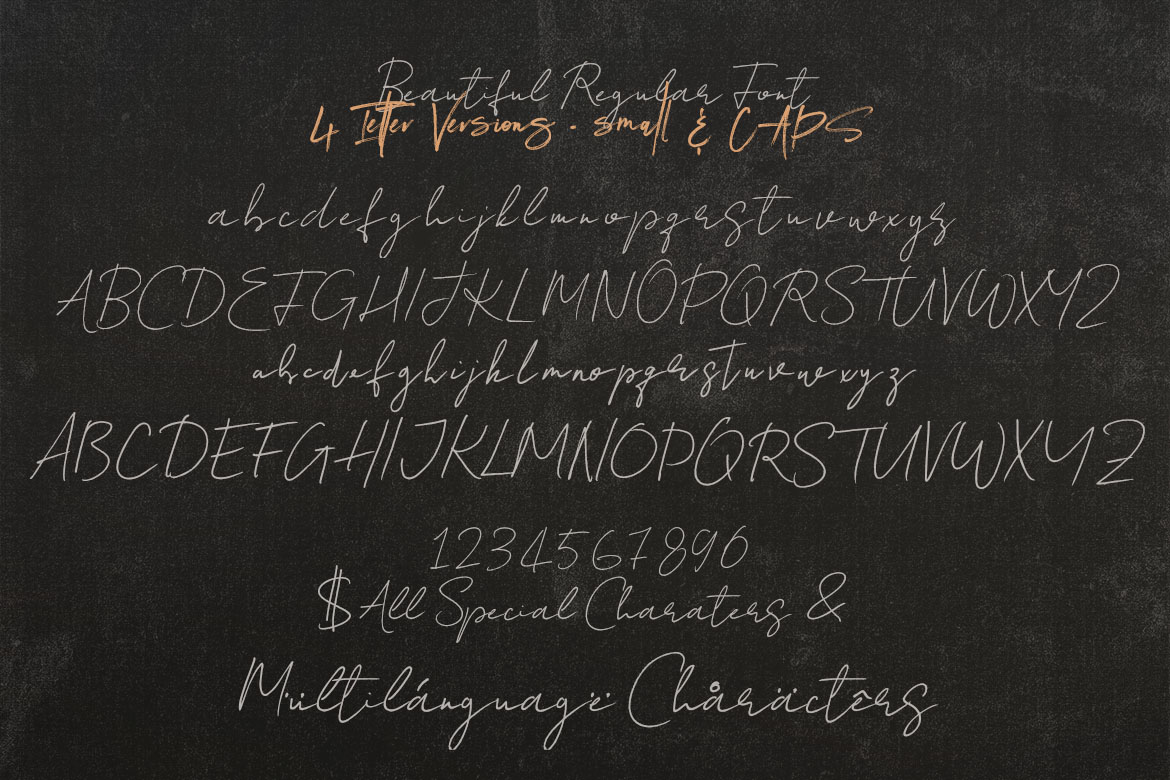 Beautiful Regular Font
4 letter Versions - small & CAPS
abcdefghijklmnopqrstuvwxyz
ABCDEFGHIJKLMNOPQRSTUVWXYZ
abcdefghijklmnopqrstuvwxyz
ABCDEFGHIJKLMNOPQRSTUVWXYZ
1234567890
$ All Special Charaters &
Mültilánguagë Chåräctêrs